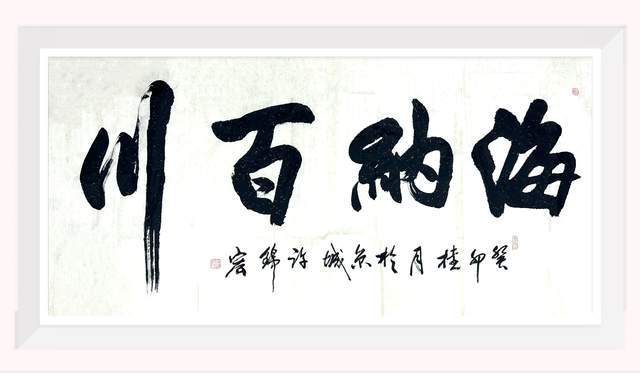 海納百川
癸卯桂月於京城許錦宏